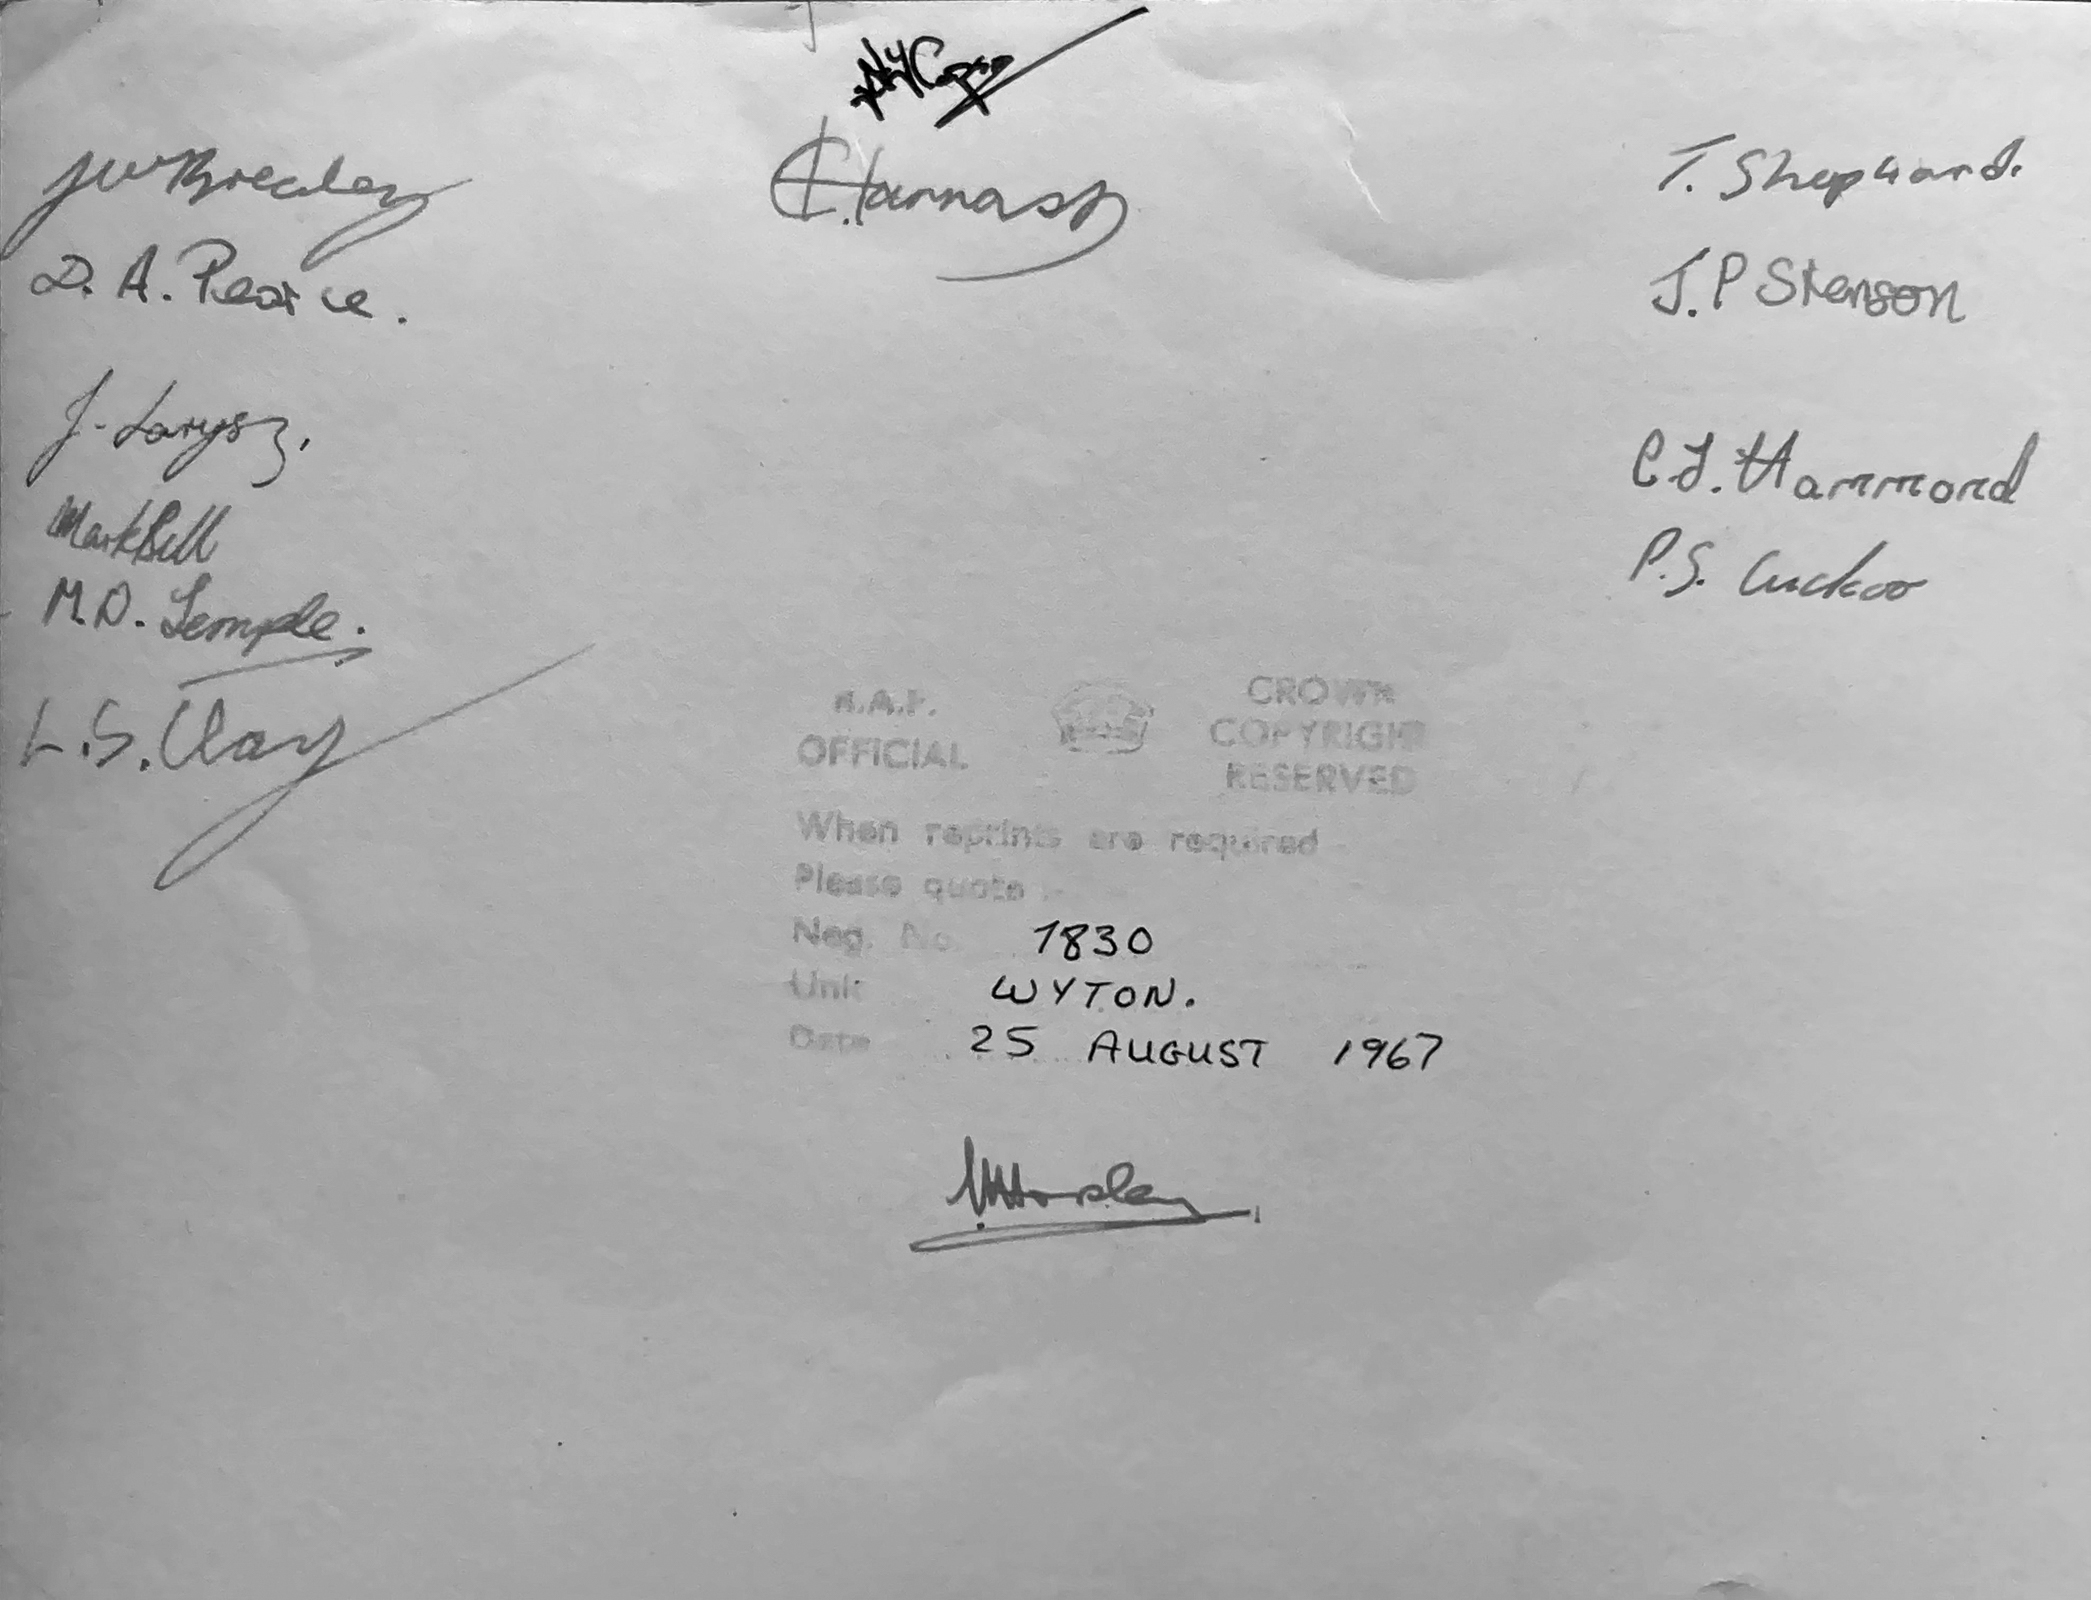 J W Brealey
D. A. Pearce.
J. Larysz,
Mark Bell
M.D. Temple.
L.S. Clay
T. Shephard.
J.P Stenson
C.J. Hammond
P.S. Cuckoo
R.A.F. OFFICIAL
CROWN COPYRIGHT RESERVED
When reprints are required
Please quote :-
Neg. No. 1830
Unit WYTON.
Date 25 AUGUST 1967
Horsley